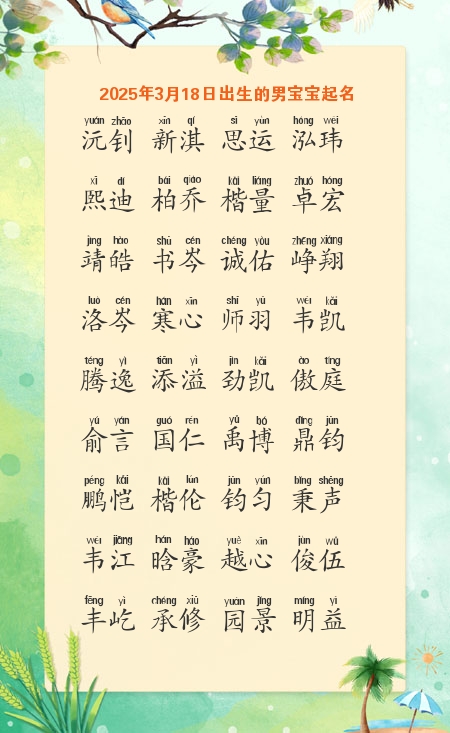 2025年3月18日出生的男宝宝起名
yuán zhāo xīn qí sī yùn hóng wěi
沅钊 新淇 思运 泓玮
xī dí bǎi qiáo kǎi liàng zhuó hóng
熙迪 柏乔 楷量 卓宏
jìng hào shū cén chéng yòu zhēng xiáng
靖皓 书岑 诚佑 峥翔
luò cén hán xīn shī yǔ wéi kǎi
洛岑 寒心 师羽 韦凯
téng yì tiān yì jìn kǎi ào tíng
腾逸 添溢 劲凯 傲庭
yú yán guó rén yǔ bó dǐng jūn
俞言 国仁 禹博 鼎钧
péng kǎi kǎi lún jūn yún bǐng shēng
鹏恺 楷伦 钧匀 秉声
wéi jiāng hán háo yuè xīn jùn wǔ
韦江 晗豪 越心 俊伍
fēng yì chéng xiū yuán jǐng míng yì
丰屹 承修 园景 明益